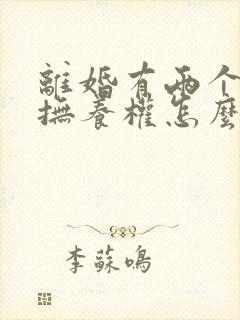 離婚有兩个
撫養權怎麼
李蘇鳴